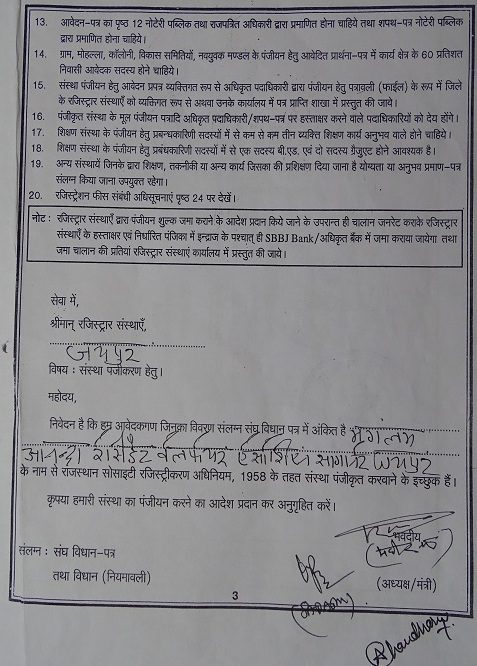 13. आवेदन-पत्र का पृष्ठ 12 नोटेरी पब्लिक तथा राजपत्रित अधिकारी द्वारा प्रमाणित होना चाहिये तथा शपथ-पत्र नोटेरी पब्लिक
द्वारा प्रमाणित होना चाहिये।
14. ग्राम, मोहल्ला, कॉलोनी, विकास समितियों, नवयुवक मण्डल के पंजीयन हेतु आवेदित प्रार्थना-पत्र में कार्य क्षेत्र के 60 प्रतिशत
निवासी आवेदक सदस्य होने चाहिये।
15. संस्था पंजीयन हेतु आवेदन प्रपत्र व्यक्तिगत रूप से अधिकृत पदाधिकारी द्वारा पंजीयन हेतु पत्रावली (फाईल) के रूप में जिले
के रजिस्ट्रार संस्थाएँ को व्यक्तिगत रूप से अथवा उनके कार्यालय में पत्र प्राप्ति शाखा में प्रस्तुत की जाये।
16. पंजीकृत संस्था के मूल पंजीयन पत्रादि अधिकृत पदाधिकारी/शपथ-पत्र पर हस्ताक्षर करने वाले पदाधिकारियों को देय होंगे।
17. शिक्षण संस्था के पंजीयन हेतु प्रबन्धकारिणी सदस्यों में से कम से कम तीन व्यक्ति शिक्षण कार्य अनुभव वाले होने चाहिये।
18. शिक्षण संस्था के पंजीयन हेतु प्रबंधकारिणी सदस्यों में से एक सदस्य बी.एड. एवं दो सदस्य ग्रैजुएट होने आवश्यक है।
19. अन्य संस्थायें जिनके द्वारा शिक्षण, तकनीकी या अन्य कार्य जिसका की प्रशिक्षण दिया जाना है योग्यता या अनुभव प्रमाण-पत्र
संलग्न किया जाना उपयुक्त रहेगा।
20. रजिस्ट्रेशन फीस संबंधी अधिसूचनाएं पृष्ठ 24 पर देखें।
नोट : रजिस्ट्रार संस्थाएँ द्वारा पंजीयन शुल्क जमा कराने के आदेश प्रदान किये जाने के उपरान्त ही चालान जनरेट कराके रजिस्ट्रार
संस्थाएँ के हस्ताक्षर एवं निर्धारित पंजिका में इन्द्राज के पश्चात् ही SBBJ Bank/अधिकृत बैंक में जमा कराया जायेगा तथा
जमा चालान की प्रतियां रजिस्ट्रार संस्थाएं कार्यालय में प्रस्तुत की जाये।
सेवा में,
श्रीमान् रजिस्ट्रार संस्थाएँ,
जयपुर
विषय : संस्था पंजीकरण हेतु।
महोदय,
निवेदन है कि हम आवेदकगण जिनका विवरण संलग्न संघ विधान पत्र में अंकित है मंगलम
आनन्दा रेसिडेंट वेलफेयर एसोशिएसन सांगानेर जयपुर
के नाम से राजस्थान सोसाइटी रजिस्ट्रीकरण अधिनियम, 1958 के तहत संस्था पंजीकृत करवाने के इच्छुक हैं।
कृपया हमारी संस्था का पंजीयन करने का आदेश प्रदान कर अनुग्रहित करें।
भवदीय
संलग्न : संघ विधान-पत्र
तथा विधान (नियमावली)
(अध्यक्ष/मंत्री)
3
Chaudhary